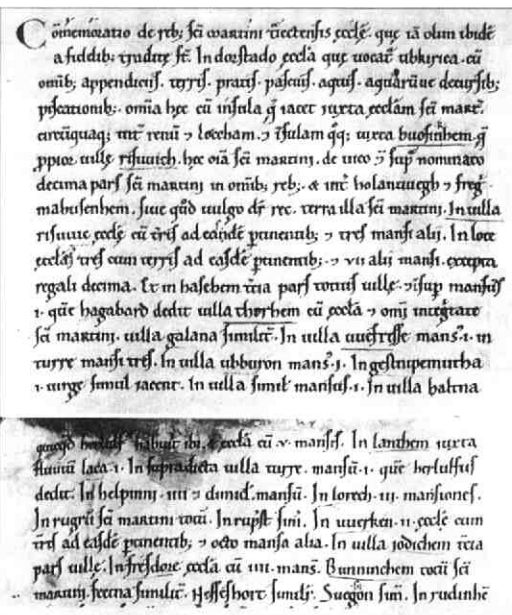 Cōmemoratio de reb; sc̄i martini t̄iectensis ęccl̄ę. quę iā olim ibidē
a fidelib; tradite st̄. In dorstado eccl̄a que uocat̄ ubkirica. cū
omīb; appendiciis. terris. pratis. pascuis. aquis. aquarūue decursib;
piscationib;. om̄ia hęc cū insula q̄ iacet iuxta ęccl̄am sc̄i mart̄.
circūquaq; int̄ renū ⁊ loccham. ⁊ īsulam q̄q; iuxta buosinhem. q̄
p̱pior uille risuuich. hęc om̄ia sc̄i martini. de uico ō sup̄ nominato
decima pars sc̄i martini in omīb; reb;. & int̄ holanuuegh ⁊ freg̅
mabusenhem. siue qd̄ uulgo dr̄ rec. terra illa sc̄i martini. In uilla
risuuic ęccl̄ę cū t̄ris ad eandē ptinentib; ⁊ tres mansi alij. In loce
ęccl̄as tres cum terris ad easdē ptinentib; ⁊ vii alij mansi. excepta
regali decima. Et in hasehem t̄cia pars totius uille. ⁊ īsup mansus
.i. quē hagabard dedit uilla thorhem cū ęccl̄a ⁊ omī integritate
sc̄i martini. uilla galana similit̄. In uilla uuefresse mans̄.i. in
turre mansi tres. In uilla ubburon mans̄.j. In gestnipemutha
.i. uirge simul iacent. In uilla simil mansus.i. In uilla halcna
habuit ibi, & ęccl̄a cū .v. mansis. In lanthem iuxta
fluuiū laca .i. In supradicta uilla turre. mansū.i. quē herlulfus
dedit. In helpinni .iiii ⁊ dimid̄. mansū. In lorech .iii. mansiones.
In rugrū sc̄i martini totū. In rupst sim̄i. In uuerken .ii. ęccl̄ę cum
t̄ris ad easdē ptinentib; ⁊ octo mansa alia. In uilla iodichem t̄cia
pars uille. In fresdore ęccl̄a cū .iiii. mans̄. Bunninchem totū sc̄i
martini. fecna similit̄. Heffeshort similit̄. Suegon sim̄. In rudinhē